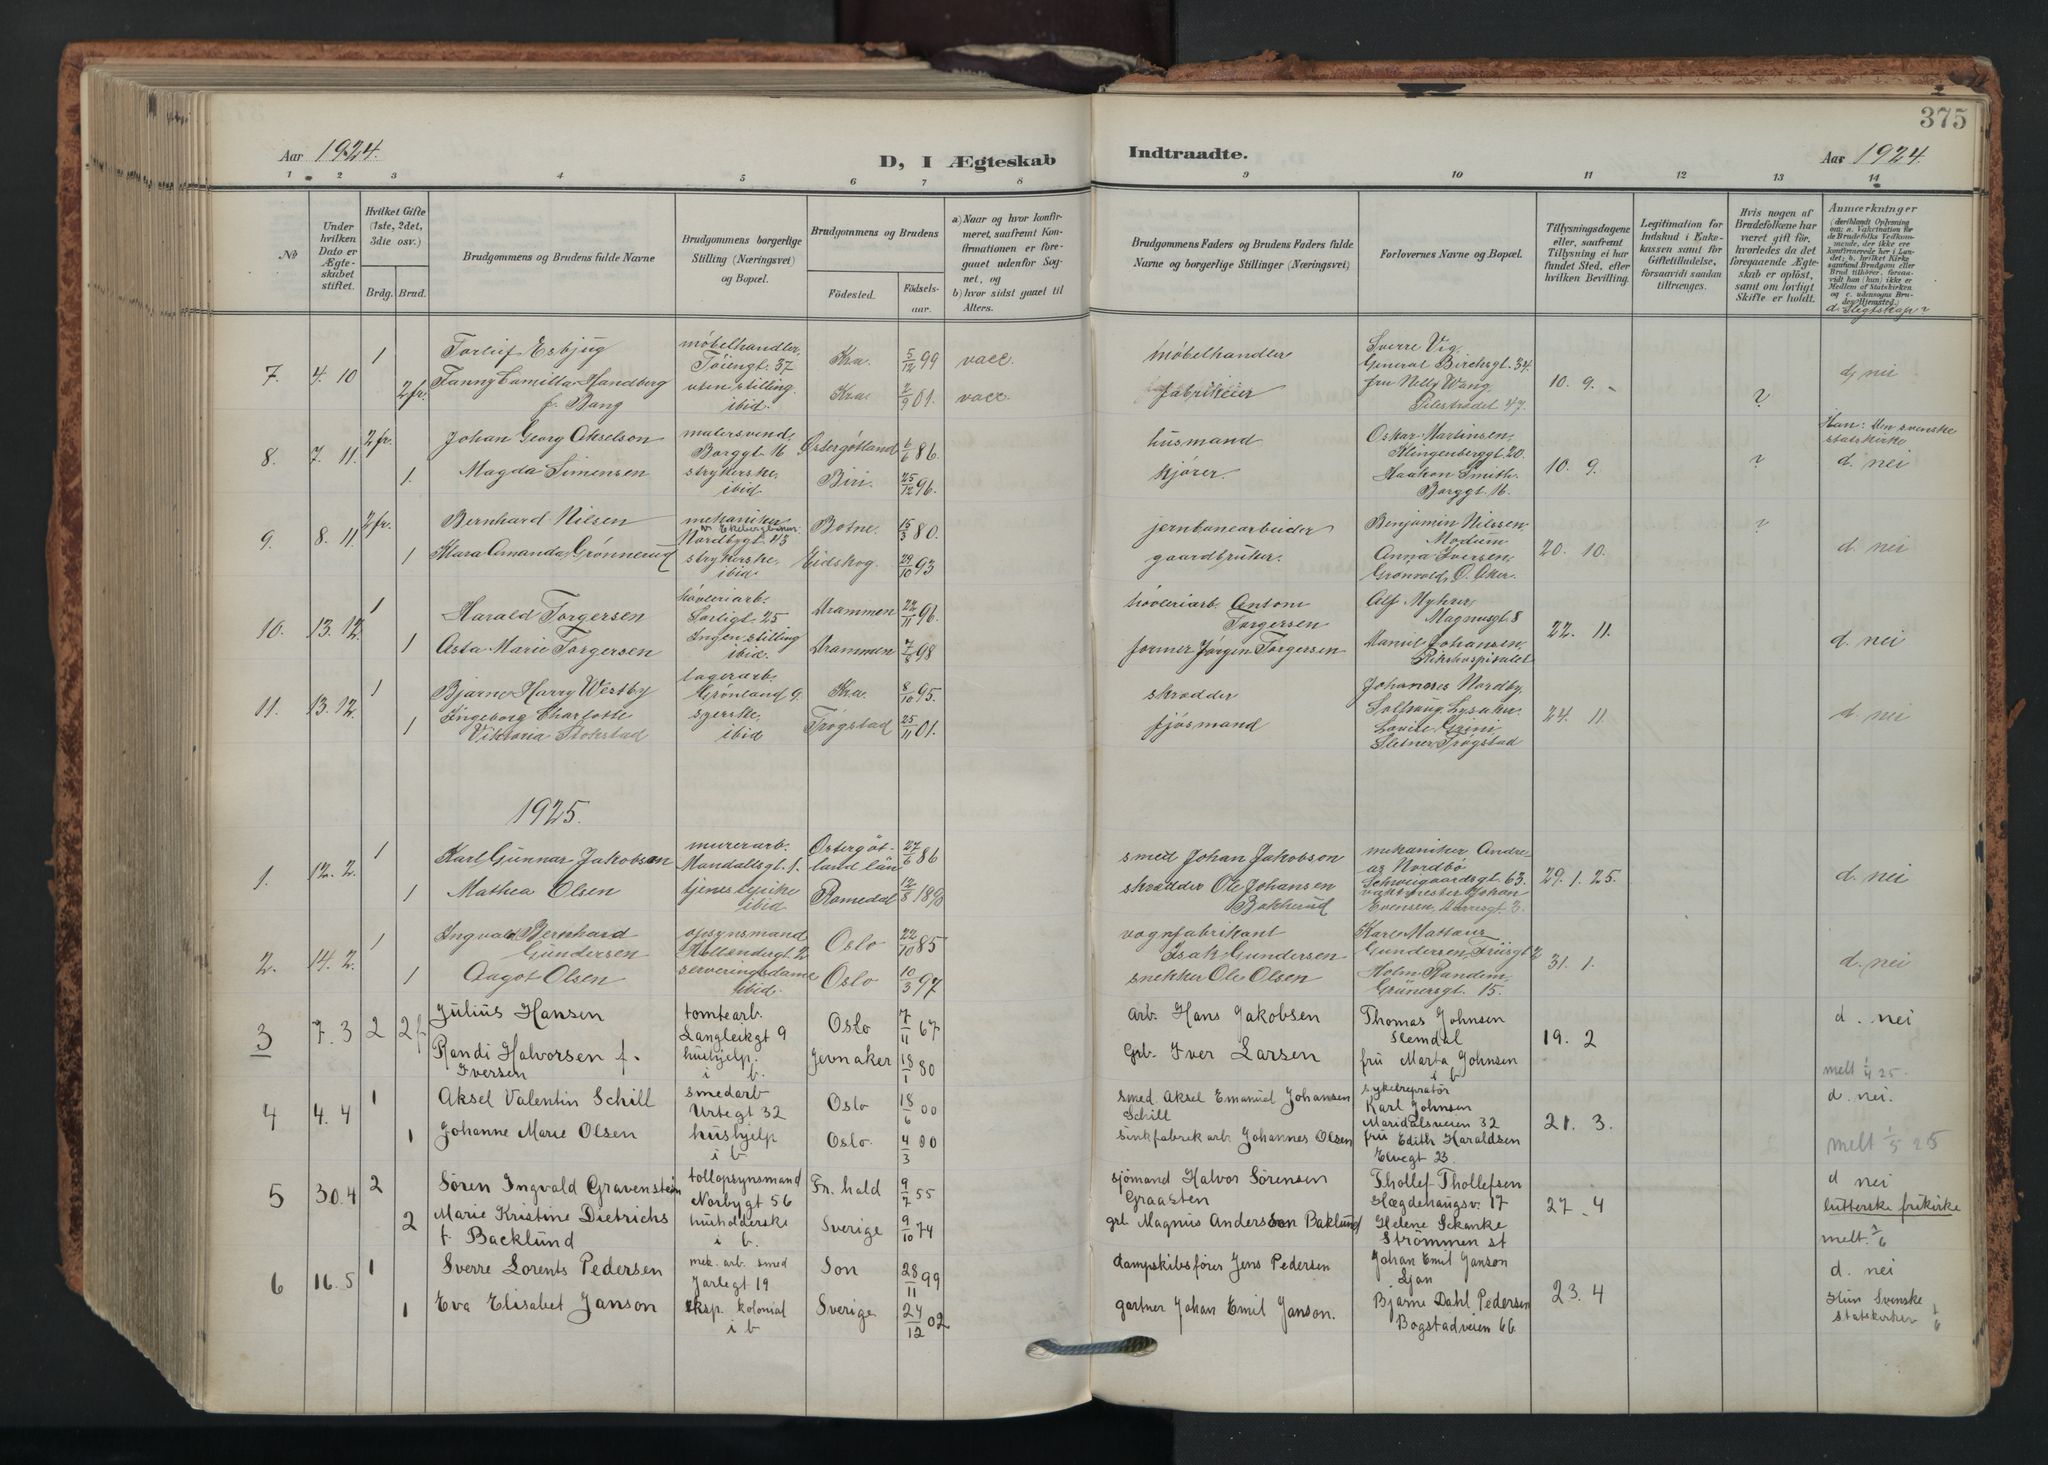 375
Aar 1924.
D, I Ægteskab Indtraadte.
Aar 1924.
1 2 3 4 5 6 7 8 9 10 11 12 13 14
No
Under hvilken Dato er Ægteskabet stiftet.
Hvilket Gifte (1ste, 2det, 3die osv.)
Brdg. Brud.
Brudgommens og Brudens fulde Navne
Brudgommens borgerlige Stilling (Næringsvei) og Bopæl.
Brudgommens og Brudens
Fødested. Fødselsaar.
a) Naar og hvor konfirmeret, saafremt Konfirmationen er foregaaet udenfor Sognet, og
b) hvor sidst gaaet til Alters.
Brudgommens Faders og Brudens Faders fulde Navne og borgerlige Stillinger (Næringsvei)
Forlovernes Navne og Bopæl.
Tillysningsdagene eller, saafremt Tillysning ei har fundet Sted, efter hvilken Bevilling.
Legitimation for Indskud i Enkekassen samt for Giftetilladelse, forsaavidt saadan tiltrænges.
Hvis nogen af Brudefolkene har været gift før, hvorledes da det foregaaende Ægteskab er opløst, samt om lovligt Skifte er holdt.
Anmærkninger
(deriblandt Oplysning om: a. Vakcination for de Brudefolks Vedkommende, der ikke ere konfirmerede her i Landet; b. hvilket Kirkesamfund Brudgom eller Brud tilhører, forsaavidt han (hun) ikke er Medlem af Statskirken og c. udensogns Brudes Hjemsted.)
d. Slegtskap?
7. 4. 10 1 Torleif Esbjug møbelhandler, Tøiengt. 37 Kra. 5/12 99 vacc. møbelhandler Sverre Vig, General Birchsgt. 34.
2 fr. Fanny Camilla Handberg f. Bang uten stilling ibid. Kra. 2/9 01. vacc. fabrikeier fru Nelly Wang Pilestrædet 47. 10. 9. - ? d. nei
8. 7. 11. 2 fr. Johan Georg Akselson malersvend, Borggt. 16 Østergøtland 6/6 86. husmand Oskar Martinsen, Klingenberggt 20. 10. 9. ? Han: den svenske statskirke
1. Magda Simensen strykerske, ibid Biri. 25/12 96. kjører. Haakon Smith Borggt. 16. d. nei
9. 8. 11. 2 fr. Bernhard Nilsen mekaniker v. Ekebergbanen. Nordbygt. 43 Botne. 15/3 80. jernbanearbeider Benjamin Nilssen, Modum ?
1 Klara Amanda Grønnerud strykerske, ibid. Eidskog. 29/10 93 gaardbruker. Anna Iversen, Grønvold, Ø. Aker. 20. 10. d. nei
10. 13. 12. 1 Harald Torgersen høvleriarb. Sørligt. 25 Drammen 22/11 96. høvleriarb. Anton Torgersen Alf Myhrer, Magnusgt. 8 22. 11.
1 Asta Marie Torgersen Ingen stilling ibid. Drammen 7/8 98 former Jørgen Torgersen Daniel Johansen, Rikshospitalet d. nei
11. 13. 12. 1 Bjarne Harry Westby lagerarb. Grønland 9. Kra. 8/10 95. skrædder Johannes Nordby, Lysaker. 24. 11. d. nei
1 Ingeborg Charlotte Viktoria Stokstad syerske, ibid Trøgstad 25/11 01. fjøsmand Sletner, Trøgstad
1925.
1. 12. 2. 1 Karl Gunnar Jakobson murerarb. Mandallsgt. 1. Østergötland län 27/6 86 smed Johan Jakobson mekaniker Andreas Nordbø Schweigaardsgt. 63. 29. 1. 25. d. nei
1 Mathea Olsen tjenestepike ibid Romedal 12/8 1890 skrædder Ole Johansen Bakkerud vaktmester Johan Evensen, Norresgt. 3.
2. 14. 2. 1 Ingvald Bernhard Gundersen opsynsmand Hollendergt. 2 Oslo 22/10 85 vognfabrikant Isak Gundersen Karl Mattæus Gundersen, Friisgt 2 31. 1. d. nei
1 Aagot Olsen serveringsdame ibid. Oslo 10/3 97 snekker Ole Olsen Holm Randem, Grünersgt. 15.
3 7. 3 2 Julius Hansen tomtearb. Langleikgt 9 Oslo 7/11 67 Arb. Hans Jakobsen Thomas Johnsen Slemdal 19. 2 d. nei
2 f Randi Halvorsen f. Iversen hushjelp. i b. Jevnaker 18/1 80 Grb. Iver Larsen fru Marta Johnsen i b melt 1/4 25.
4 4. 4 1 Aksel Valentin Schill smedarb Urtegt 32 Oslo 18/6 00 smed. Aksel Emanuel Johansen Schill sykelreparatør Karl Johnsen Maridalsveien 32 21. 3. d. nei.
1 Johanne Marie Olsen hushjelp i b Oslo. 4/3 00 sinkfabrikarb. Johannes Olsen fru Edith Haraldsen Elvegt 23. melt 1/5 25
5 30.4 2 Søren Ingvald Gravenstein tollopsynsmand Norbygt 56 Fr. hald 9/7 55 sjømand Halvor Sørensen Graasten Thollef Thollefsen Hægdehaugsv. 17 27. 4 d nei lutterske frikirke
2 Marie Kristine Dietrichs f. Backlund husholderske i b. Sverige 9/10 74 grb. Magnus Anderson Baklund Helene Skanke Strømmen st melt. 1/6
6 16. 5 1 Sverre Lorents Pedersen mek. arb. smed Jarlegt 19 Son 28/11 99 dampskibsfører Jens Pedersen Johan Emil Janson Ljan 23. 4 d. nei
1 Eva Elisabet Janson eksp. kolonial i b Sverige 24/12 02 gartner Johan Emil Janson. Bjarne Dahl Pedersen Bogstadveien 66. Hun Svenske statskirken 1/6